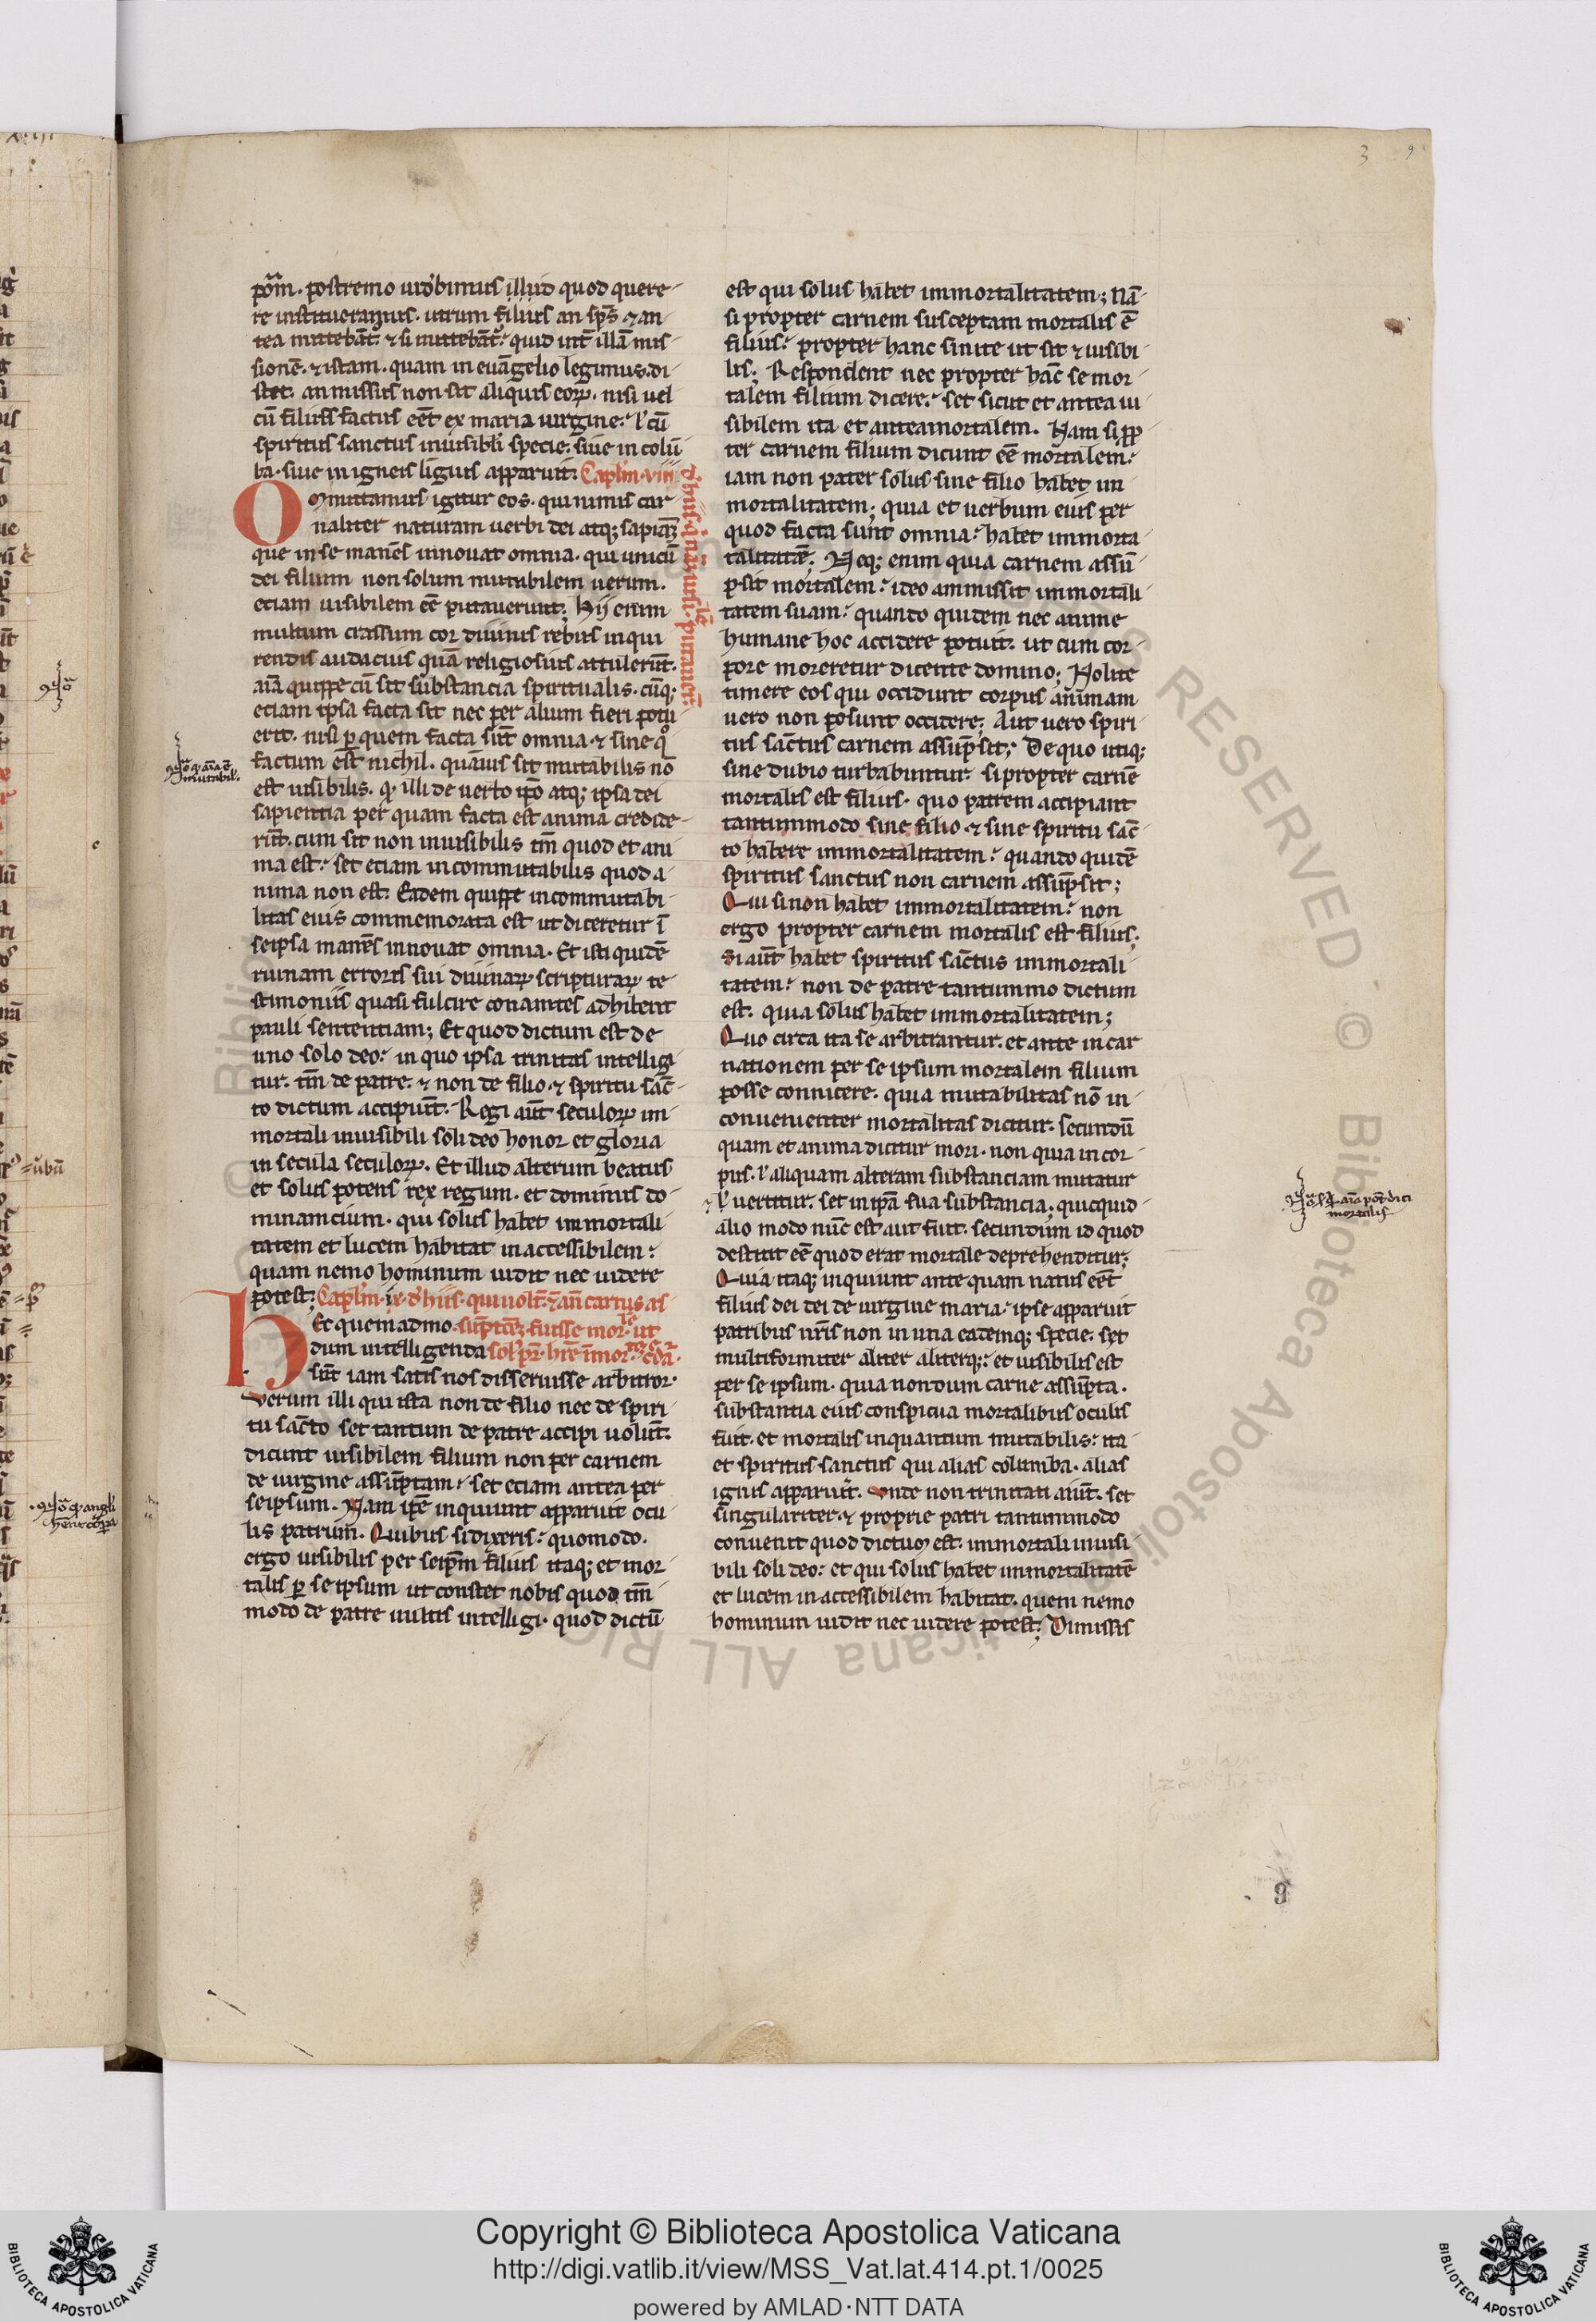 3 9
poãm. postremo uidebimus illud quod quere-
re institueramus. utrum filius an sp̃s ⁊ an-
tea mittebãt᷑ ⁊ si mittebãt᷑. quid int̃ illã mis-
sionẽ. ⁊ istam. quam in euãgelio legimus. di-
stet. an missus non sit aliquis eoꝝ. nisi uel
cũ filius factus eẽt ex maria uirgine. ł cũ
spiritus sanctus inuisibli specie. siue in colũ
ba. siue in igneis liguis apparuit. Capl̃m. viii
Omittamus igitur eos. qui nimis car-
naliter naturam uerbi dei atqꝫ sapiam̃
que in se manẽs innouat omnia. qui unicũ
dei filium non solum mutabilem uerum.
etiam uisibilem eẽ putauerunt; Hij enim
multum crassum cor diuinis rebus inqui
rendis audacius quã religiosius attulerũt.
aĩa quippe cũ sit substancia spiritualis. cũqꝫ
etiam ipsa facta sit nec per alium fieri potu-
erit. nisi ꝑ quem facta sũt omnia. ⁊ sine qͦ
factum est nichil. quãuis sit mutabilis nõ
est uisibilis. qͥ illi de uerbo ip̃o atqꝫ ipsa dei
sapientia per quam facta est anima credide-
rũt. cum sit non inuisibilis tm̃ quod et ani
ma est. set etiam incommutabilis quod a-
nima non est. Eadem quippe incommutabi-
litas eius commemorata est ut diceretur ĩ
seipsa manẽs innouat omnia. Et isti quidẽ
ruinam erroris sui diuinaꝝ scripturaꝝ te-
stimoniis quasi fulcire conantes adhibent
pauli sententiam; Et quod dictum est de
uno solo deo. in quo ipsa trinitas intelligi
tur. tm̃ de patre. ⁊ non de filio. ⁊ spiritu sãc-
to dictum accipiũt. Regi aũt seculoꝝ im-
mortali inuisibili soli deo honor et gloria
in secula seculoꝝ. Et illud alterum beatus
et solus potens rex regum. et dominus do-
minancium. qui solus habet immortali-
tatem et lucem habitat inaccessibilem.
quam nemo hominum uidit nec uidere
potest; Capl̃m. ix. d' hiis. qui uolt̃
Hec quemadmo
dum intelligenda
sũt iam satis nos disseruisse arbitror.
Verum illi qui ista non de filio nec de spiri-
tu sãcto set tantum de patre accipi uolũt.
dicunt uisibilem filium non per carnem
de uirgine assũptam. set etiam antea per
seipsum. Nam ip̃e inquiunt apparuit ocu-
lis patrum. Quibus si dixeris. quomodo.
ergo uisibilis per seip̃m filius itaqꝫ et mor-
talis ꝑ se ipsum ut constet nobis quod tm̃
modo de patre uultis intelligi. quod dictũ
est qui solus habet immortalitatem; Nã-
si propter carnem susceptam mortalis ẽ
filius. propter hanc sinite ut sit ⁊ uisibi-
lis; Respondent nec propter hãc se mor-
talem filium dicere. set sicut et antea ui
sibilem ita et antea mortalem. Nam si ꝓp
ter carnem filium dicunt eẽ mortalem.
iam non pater solus sine filio habet im
mortalitatem; quia et uerbum eius per
quod facta sunt omnia. habet immorta-
talitatẽ; Neqꝫ enim quia carnem assũ-
psit mortalem. ideo ammissit immortali-
tatem suam. quando quidem nec anime
humane hoc accidere potuit. ut cum cor-
pore moreretur dicente domino; Nolite
timere eos qui occidunt corpus animam
uero non posunt occidere; Aut uero spiri-
tus sãctus carnem assũpsit; De quo utiqꝫ
sine dubio turbabuntur. si propter carnẽ
mortalis est filius. quo patrem accipiant
tantummodo sine filio ⁊ sine spiritu sãc-
to habere immortalitatem. quando quidẽ
spiritus sanctus non carnem assũpsit;
Qui si non habet immortalitatem. non
ergo propter carnem mortalis est filius.
Si aũt habet spiritus sãctus immortali-
tatem. non de patre tantummo dictum
est. quia solus habet immortalitatem;
Quo circa ita se arbitrantur. et ante incar
nationem per se ipsum mortalem filium
posse connicere. quia mutabilitas nõ in-
conuenienter mortalitas dicitur. secundũ
quam et anima dicitur mori. non quia in cor-
pus. ł aliquam alteram substanciam mutatur
ł uertitur. set in ip̃a sua substancia. quicquid
alio modo nũc est aut fuit. secundum id quod
destitit eẽ quod erat mortale deprehenditur;
Quia itaqꝫ inquiunt ante quam natus eẽt
filius dei dei de uirgine maria. ipse apparuit
patribus nr̃is non in una eademqꝫ specie. set
multiformiter aliter aliterqꝫ. et uisibilis est
per se ipsum. quia nondum carne assũpta.
substantia eius conspicua mortalibus oculis
fuit. et mortalis inquantum mutabilis. ita
et spiritus sanctus qui alias columba. alias
ignis apparuit. Unde non trinitati aiũt. set
singulariter ⁊ proprie patri tantummodo
conuenit quod dictum est. immortali inuisi-
bili soli deo. et qui solus habet immortalitatẽ
et lucem inaccessibilem habitat. quem nemo
hominum uidit nec uidere potest; Dimissis
9
Copyright © Biblioteca Apostolica Vaticana
http://digi.vatlib.it/view/MSS_Vat.lat.414.pt.1/0025
powered by AMLAD·NTT DATA
BIBLIOTECA APOSTOLICA VATICANA
BIBLIOTECA APOSTOLICA VATICANA